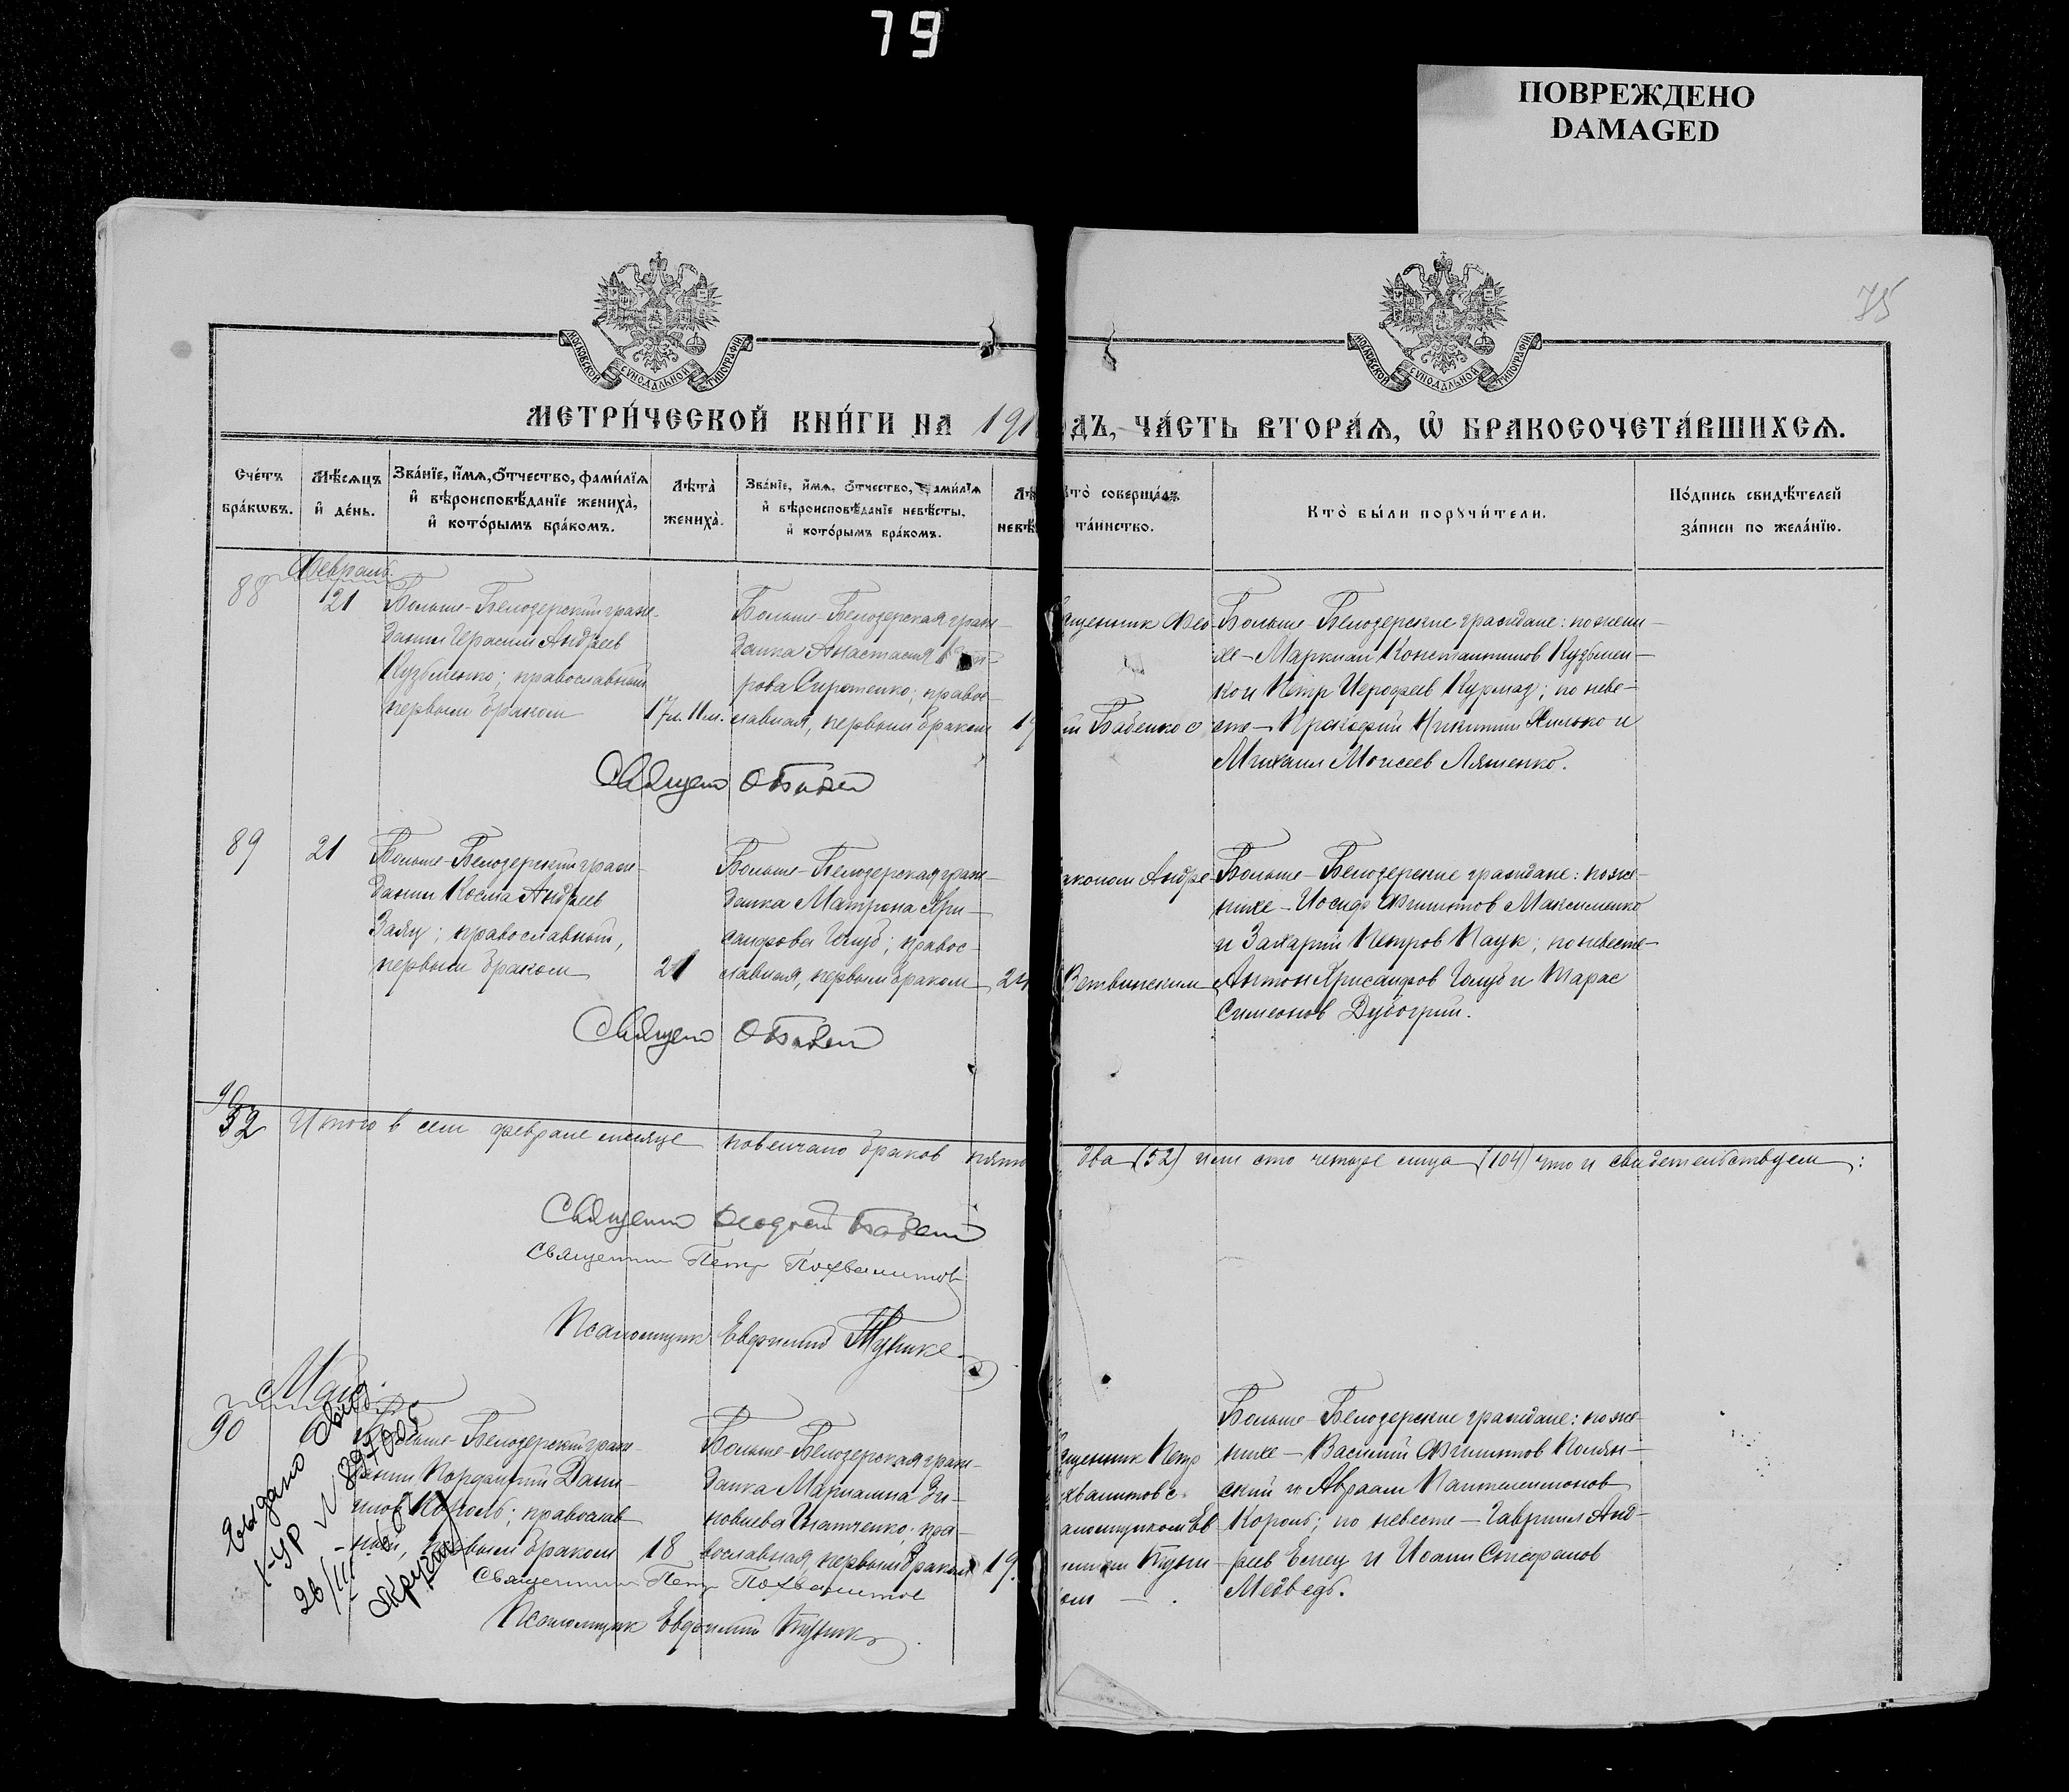 79
ПОВРЕЖДЕНО
DAMAGED
75
МОСКОВСКОЙ СУНОДАЛЬНОЙ ТИПОГРАФІИ
МОСКОВСКОЙ СУНОДАЛЬНОЙ ТИПОГРАФІИ
МЕТРИ́ЧЕСКОЙ КНИ́ГИ НА 191
ДЪ, ЧА́СТЬ ВТОРА́Ѧ, Ѡ҆ БРАКОСОЧЕТА́ВШИХСѦ.
Сче́тъ бра́кѡвъ.
Мѣ́сѧцъ и҆ де́нь.
Зва́нїе, и҆́мѧ, ѻ҆́тчество, фами́лїѧ
и҆ вѣроисповѣ́данїе жениха̀,
и҆ кото́рымъ бра́комъ.
Лѣта̀
жениха̀.
Зва́нїе, и҆́мѧ, ѻ҆́тчество, фами́лїѧ
и҆ вѣроисповѣ́данїе невѣ́сты,
и҆ кото́рымъ бра́комъ.
Лѣ
невѣ
то̀ соверша́лъ
та́инство.
Кто̀ бы́ли порꙋчи́тели.
По́дпись свидѣ́телей
за́писи по жела́нїю.
Февраль
88
21
Больше-Белозерский граж-
данин Герасим Андреев
Кузьменко; православный
первым браком
17 л. 11 м.
Больше-Белозерская граж-
данка Анастасия
рова Сиротенко; правос-
лавная, первым браком
19
щенник Фео-
й Бабенко с
Больше-Белозерские граждане: по жени-
хе - Маркиан Константинов Кузьмен-
ко и Петр Иерофеев Курмаз; по неве-
сте - Прокофий Никитин Хилько и
Михаил Моисеев Ляшенко.
Священ
89
21
Больше-Белозерский граж-
данин Косма Андреев
Заяц; православный,
первым браком
21
Больше-Белозерская граж-
данка Матрона Хри-
санфова Голуб; правос-
лавная, первым браком
24
иаконом Андре-
Ветвинским
Больше-Белозерские граждане: по же-
нихе - Иосиф Филиппов Максименко
и Захарий Петров Паук; по невесте -
Антон Хрисанфов Голуб и Тарас
Симеонов Дубогрий.
Священ
52
Итого в сем феврале месяце повенчано браков пять
два (52) или сто четыре лица (104) что и свидетельствуем:
Священник Феодосий Бабенко
Священник Петр Похвалитов
Псаломщик Евфимий Тупик
Мая
90
Больше-Белозерский граж-
данин Порфирий Дани-
лов Король; православ-
ный, первым браком
18
Больше-Белозерская граж-
данка Марианна Зи-
новиева Игнатченко; пра-
вославная, первым браком
19.
щенник Петр
хвалитов с
аломщиком Ев
Тупи-
ом
Больше-Белозерские граждане: по же-
нихе - Василий Филиппов Полян-
ский и Авраам Пантелеимонов
Король; по невесте - Гавриил Анд-
реев Емец и Иоанн Стефанов
Медведь.
Выдано свид
I-УР №
26/III
Священник Петр Похвалитов
Псаломщик Евфимий Тупик